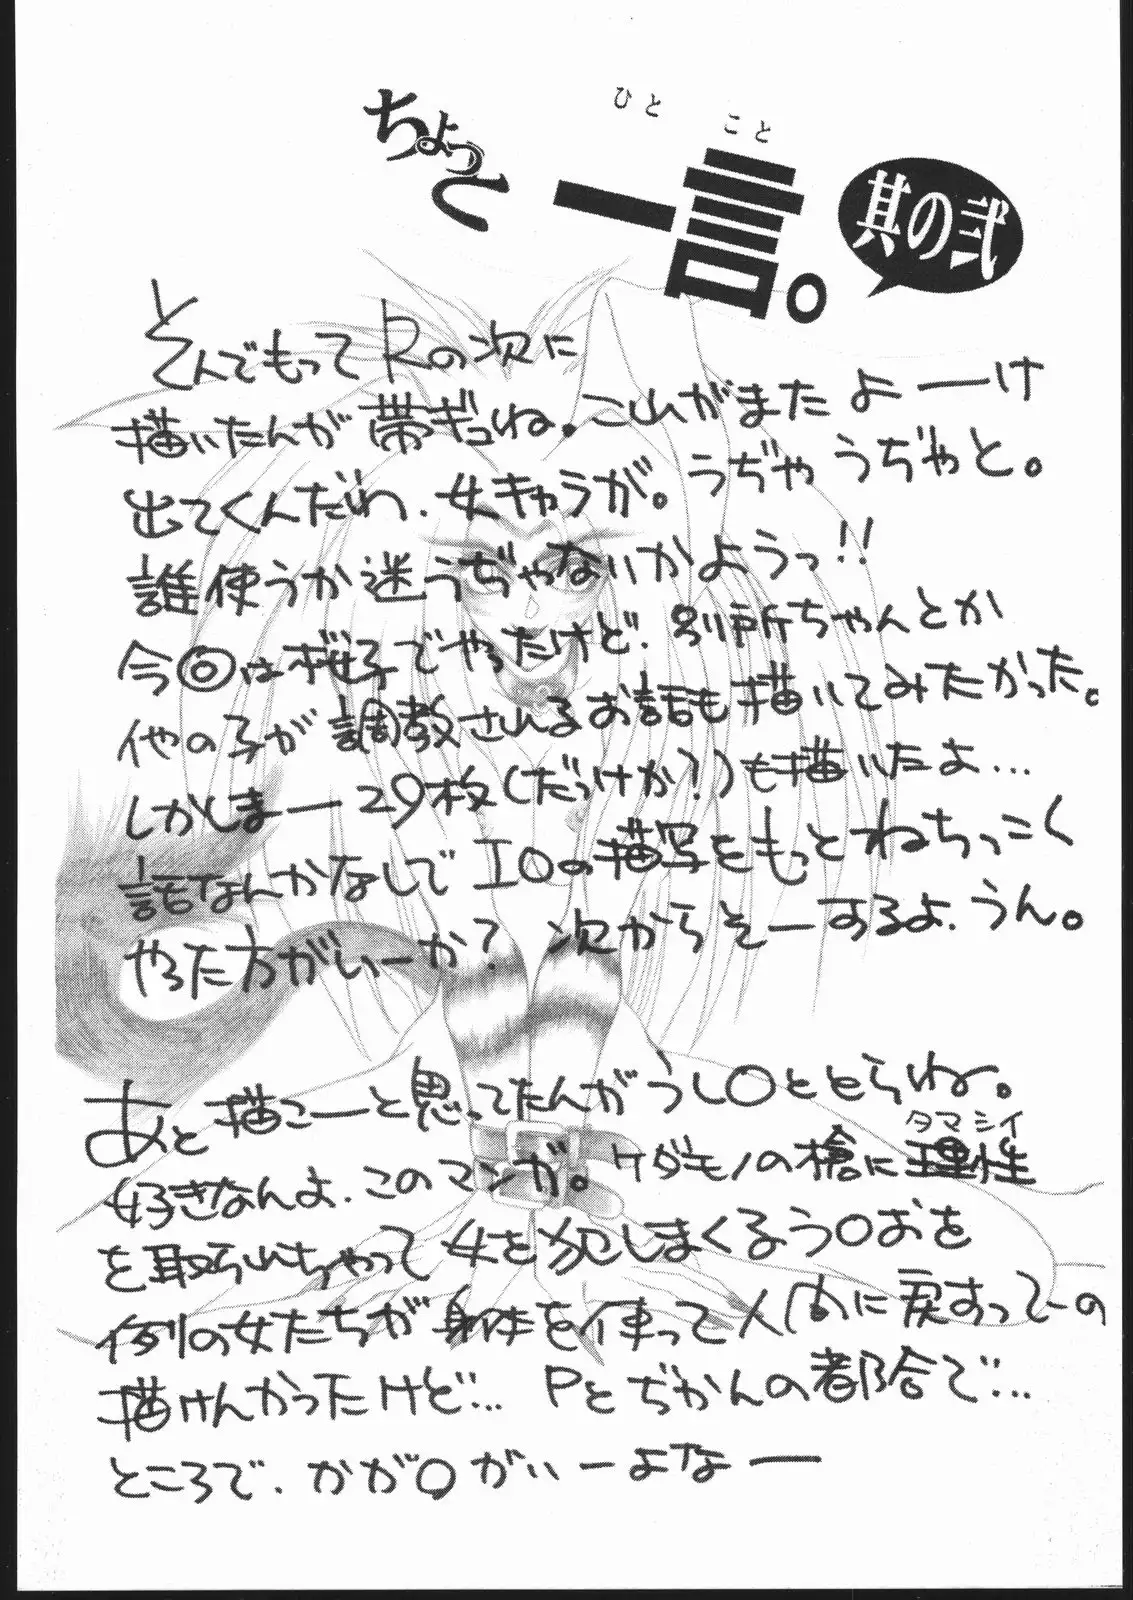 ちょっと一言。
ひと こと
其の弐
とんでもってRの次に
描いたんが帯ギュね。これがまたよーけ
出てくんだわ、女キャラが。うぢゃうぢゃと。
誰使うか迷うぢゃないかようっ!!
今回は桜子でやったけど、別所ちゃんとか
他の子が調教されるお話も描いてみたかった。
しかしまー29枚(だっけか?)も描いたよ…
話なんかなしでIOの描写をもっとねちっこく
やった方がいーか?次からそーするよ、うん。
あと描こーと思ってたんがうし○ととらね。
好きなんよ、このマンガ。ケダモノの槍に理性
タマシイ
を取られちゃって女を犯しまくるう○おを
例の女たちが身体を使って人間に戻すってーの
描けんかったけど… Pとぢかんの都合で…
ところで、かが○がいーよなー